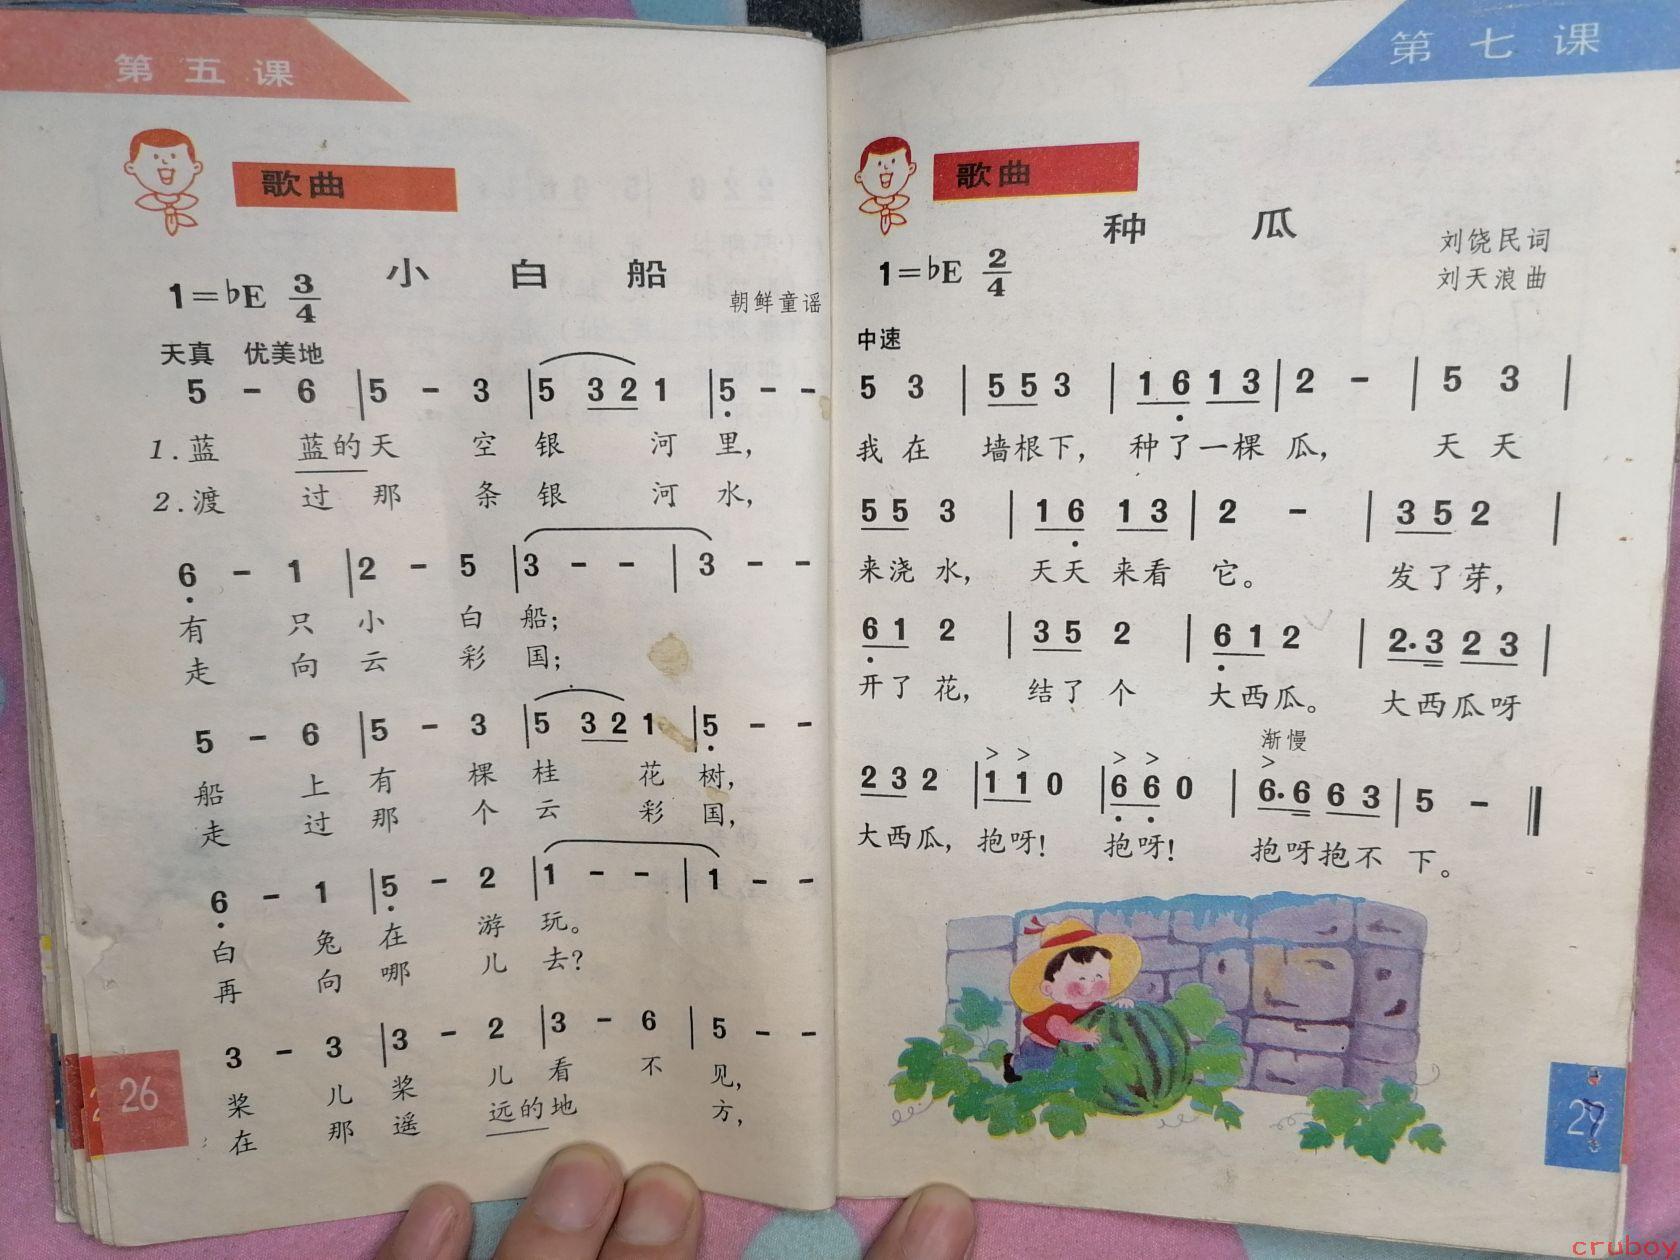 第五课
歌曲
小白船
1=♭E 3/4
朝鲜童谣
天真 优美地
5 - 6 |5 - 3 |5 3 2 1 |5 - -
1.蓝 蓝的天 空 银 河 里，
2.渡 过 那 条 银 河 水，
6 - 1 |2 - 5 |3 - - |3 - -
有 只 小 白 船；
走 向 云 彩 国；
5 - 6 |5 - 3 |5 3 2 1 |5 - -
船 上 有 棵 桂 花 树，
走 过 那 个 云 彩 国，
6 - 1 |5 - 2 |1 - - |1 - -
白 兔 在 游 玩。
再 向 哪 儿 去？
3 - 3 |3 - 2 |3 - 6 |5 - -
桨 儿 桨 儿 看 不 见，
在 那 遥 远的地 方，
26
第七课
歌曲
种瓜
刘饶民词
1=♭E 2/4
刘天浪曲
中速
5 3 |5 5 3 |1 6 1 3 |2 - |5 3 |
我 在 墙根下， 种了一棵 瓜， 天 天
5 5 3 |1 6 1 3 |2 - |3 5 2 |
来浇 水， 天天 来看 它。 发了芽，
6 1 2 |3 5 2 |6 1 2 |2· 3 2 3 |
开了 花， 结了 个 大西瓜。 大西瓜呀
渐慢
> > > > >
2 3 2 |1 1 0 |6 6 0 |6· 6 6 3 |5 - ‖
大西瓜， 抱呀！ 抱呀！ 抱呀抱不 下。
27
cruboy